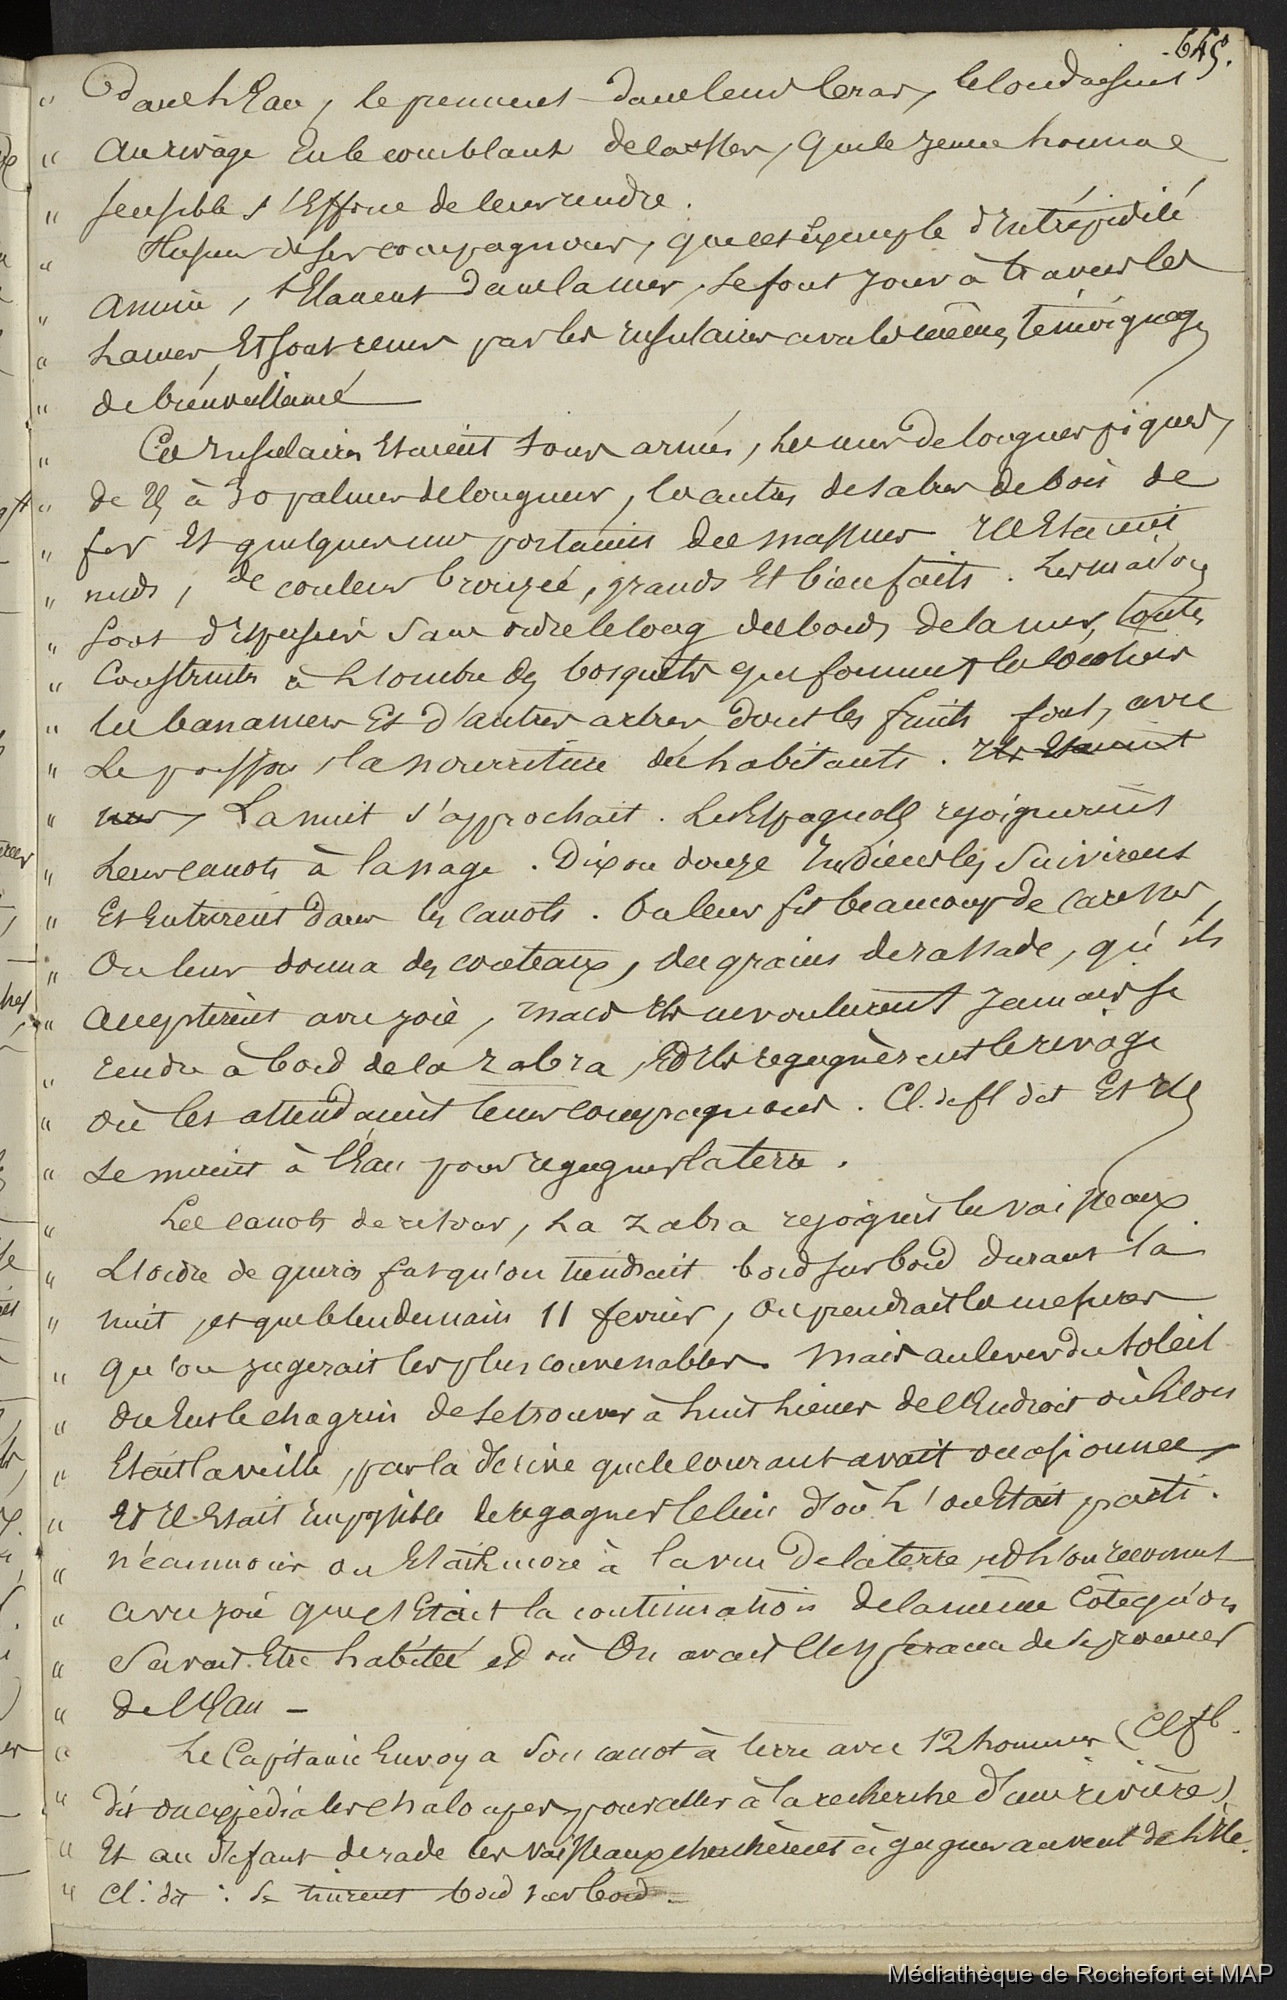 645.
" dans l'Eau, le prennent dans leurs bras, le conduisent
" au rivage en le comblant de caresses, que le jeune homme
" sensible s'Efforce de leur rendre.
" Plusieurs de ses compagnons, que cet Exemple d'intrépidité
" anime, s'Elancent dans la mer, se font jour à travers les
" lames, Et sont reçus par les insulaires avec les mêmes témoignages
" de bienveillance
" Ces insulaires Etaient tous armés, les uns de longues piques,
" de 25 à 30 palmes de longueur, les autres de sabres de bois de
" fer Et quelques uns portaient des massues Ils Etaient
" nuds, de couleur bronzée, grands Et bienfaits. Les maisons
" sont dispersées sans ordre le long des bords de la mer, toutes
" construites à l'ombre des bosquets que forment les cocotiers
" les bananiers Et d'autres arbres dont les fruits font, avec
" Le poisson, la nourriture des habitants. Ils Etaient
" nus, La nuit s'approchait. Les Espagnols rejoignirent
" Leurs canots à la nage. Dix ou douze Indiens les suivirent
" Et Entrèrent dans les canots. On leur fit beaucoup de caresses,
" On leur donna des couteaux, des grains de rassade, qu'ils
" acceptèrent avec joie, mais Ils ne voulurent jamais se
" rendre à bord de la zabra, Et Ils regagnèrent le rivage
" où les attendaient leurs compagnons. Cl. de fl dit Et Ils
" se mirent à l'Eau pour regagner la terre.
" Les canots de retour, La zabra rejoignit les vaisseaux
" L'ordre de quiros fut qu'on tiendrait bord sur bord durant la
" nuit, et que le lendemain 11 fevrier, On prendrait les mesures
" qu'on jugerait les plus convenables. Mais au lever du soleil
" On Eut le chagrin de se trouver à huit lieues de l'Endroit où l'on
" Etait la veille, par la dérive que le courant avait occasionnée,
" Et Il Etait Impossible de regagner le lieu d'où l'on Etait parti.
" néanmoins on Etait Encore à la vue de la terre, et l'on reconnut
" avec joie que c'Etait la continuation de la même côte qu'on
" Savait Etre habitée et où On avait l'Espérance de se procurer
" de l'Eau –
" Le Capitaine Envoya son canot à terre avec 12 hommes (Cl fl.
" dit on expédia les chaloupes pour aller à la recherche d'une rivière)
" Et au défaut de rade les vaisseaux cherchèrent à gagner au vent de l'Ile.
" Cl: dit: se tinrent bord sur bord. –
Médiathèque de Rochefort et MAP